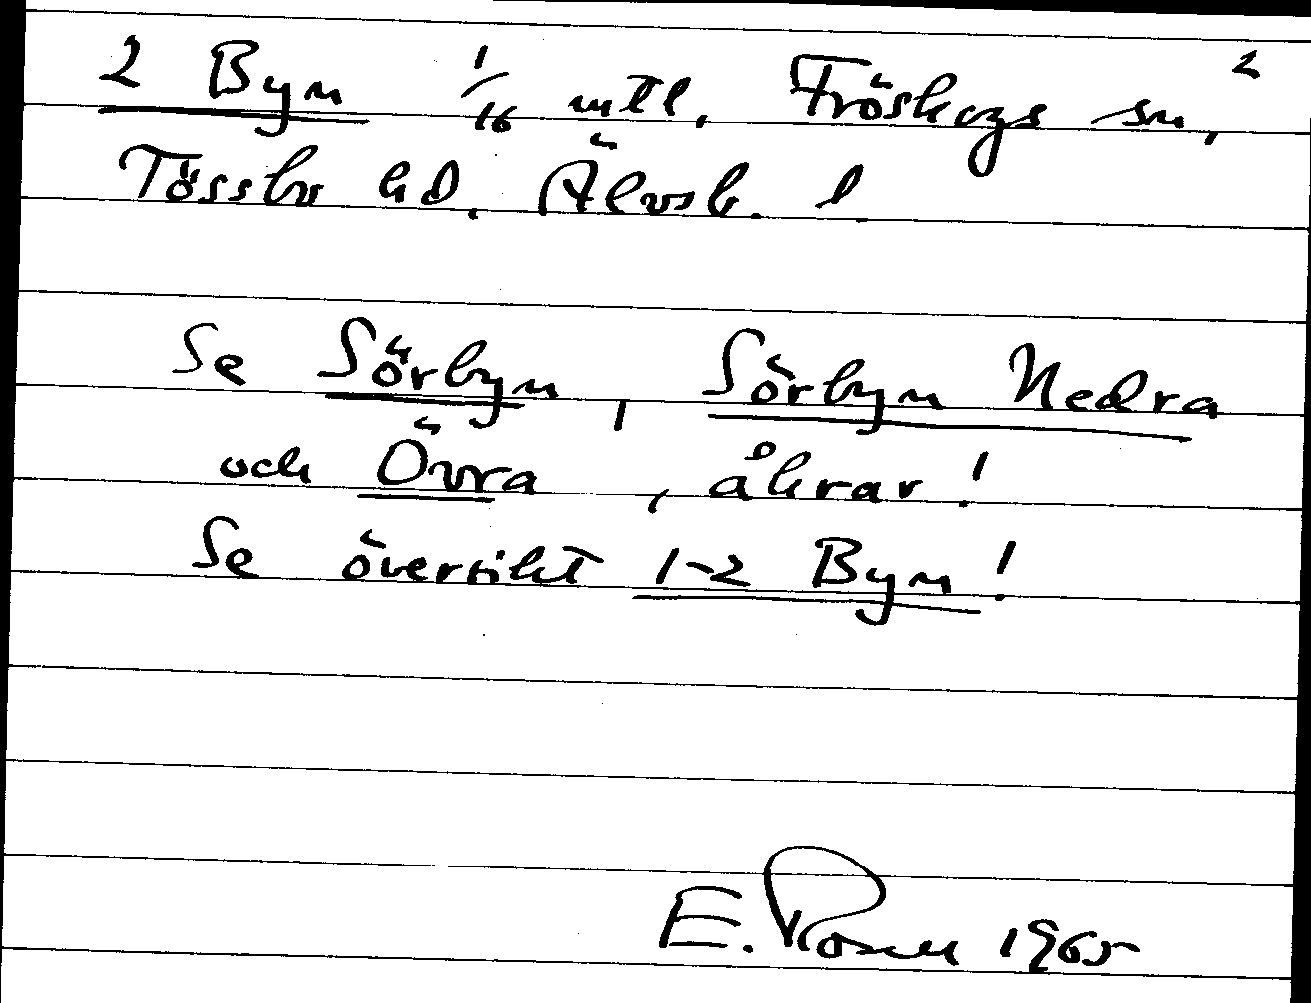 2 Byn 1/16 mtl. Fröskogs sn, 2
Tössbo hd. Älvsb. l
Se Sörbyn, Sörbyn Nedra
och Övra, åkrar!
Se översikt 1-2 Byn!
E. Rosell 1965